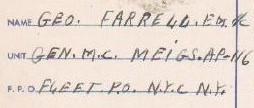 NAME GEO. FARRELL. EM. 3/c
UNIT GEN. M.C. MEIGS. AP-116
F.P.O. FLEET P.O. N.Y.C N.Y.